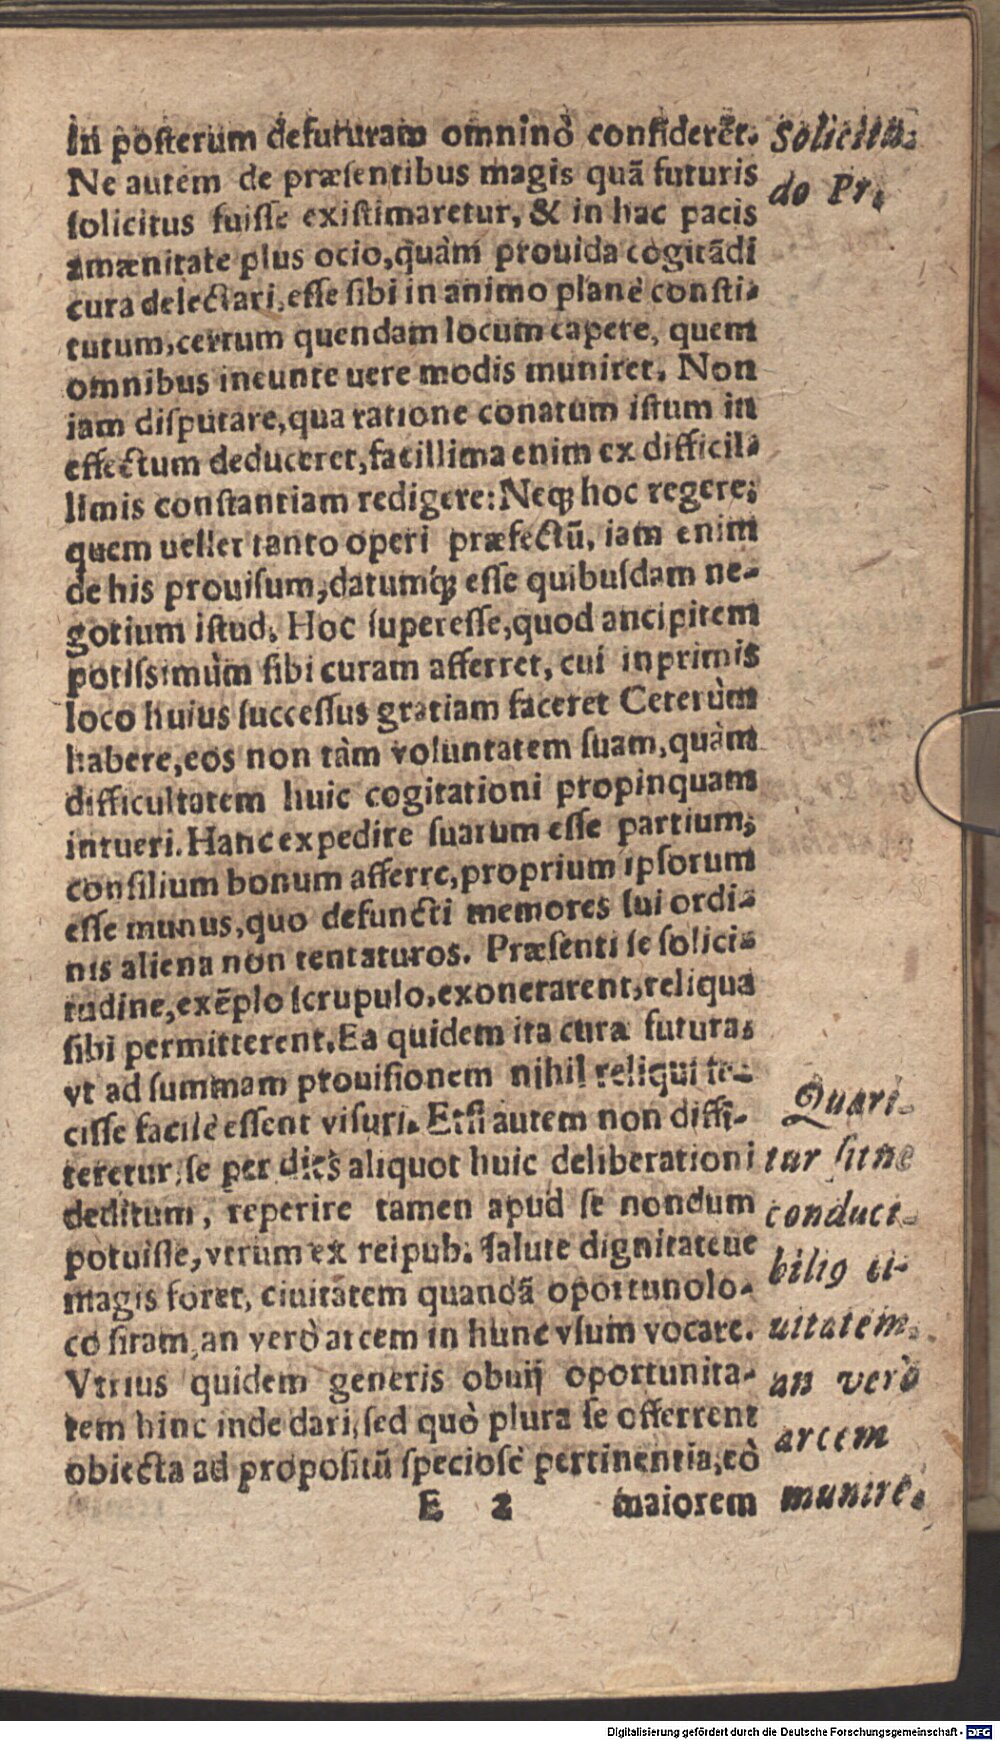 in posterum defuturam omninò confideret.
Ne autem de præsentibus magis quã futuris
solicitus fuisse existimaretur, & in hac pacis
amænitate plus ocio, quàm prouida cogitãdi
cura delectari, esse sibi in animo planè consti-
tutum, certum quendam locum capere, quem
omnibus ineunte uere modis muniret. Non
iam disputare, qua ratione conatum istum in
effectum deduceret, facillima enim ex difficil-
limis constantiam redigere: Neq; hoc regere;
quem uellet tanto operi præfectũ, iam enim
de his prouisum, datumq́; esse quibusdam ne-
gotium istud. Hoc superesse, quod ancipitem
potissimùm sibi curam afferret, cui inprimis
loco huius successus gratiam faceret Ceterùm
habere, eos non tàm voluntatem suam, quàm
difficultatem huic cogitationi propinquam
intueri. Hanc expedire suarum esse partium;
consilium bonum afferre, proprium ipsorum
esse munus, quo defuncti memores sui ordi-
nis aliena non tentaturos. Præsenti se solici-
tudine, exẽplo scrupulo, exonerarent, reliqua
sibi permitterent. Ea quidem ita curæ futura,
vt ad summam prouisionem nihil reliqui fe-
cisse facilè essent visuri. Etsi autem non diffi-
teretur, se per dies aliquot huic deliberationi
deditum, reperire tamen apud se nondum
potuisse, vtrum ex reipub. salute dignitateue
magis foret, ciuitatem quandã oportuno lo-
co sitam, an verò arcem in hunc vsum vocare.
Vtrius quidem generis obuij oportunita-
tem hinc inde dari, sed quò plura se offerrent
obiecta ad propositũ speciosè pertinentia, eò
E 2 maiorem
Solicitu-
do Pr.
Quæri-
tur sitne
conduci-
bilio ci-
uitatem,
an verò
arcem
munire.